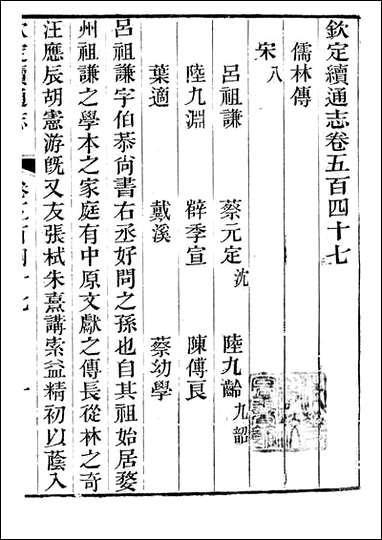 欽定續通志卷五百四十七
儒林傳
宋八
呂祖謙 蔡元定沈 陸九齡九韶
陸九淵 薛季宣 陳傅良
葉適 戴溪 蔡幼學
呂祖謙字伯恭尙書右丞好問之孫也自其祖始居婺
州祖謙之學本之家庭有中原文獻之傳長從林之奇
汪應辰胡憲游旣又友張栻朱熹講索益精初以蔭入